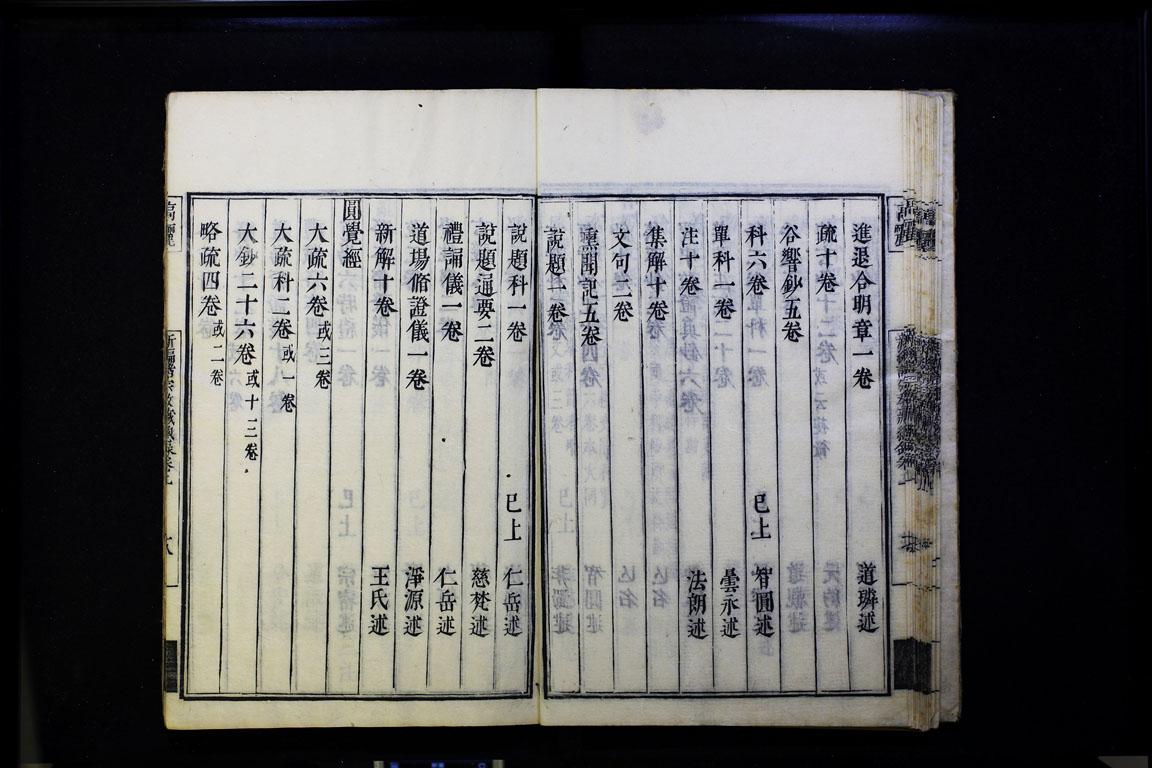 進退合明章一卷 道璘述
疏十卷
谷響鈔五卷
科六卷 已上 智圓述
單科一卷 曇永述
注十卷 法朗述
集解十卷
文句二卷
熏聞記五卷
說題一卷
說題科一卷 已上 仁岳述
說題通要二卷 慈梵述
禮誦儀一卷 仁岳述
道場脩證儀一卷 淨源述
新解十卷 王氏述
圓覺經
大疏六卷或三卷
大疏科二卷或一卷
大鈔二十六卷或十三卷
略疏四卷或二卷